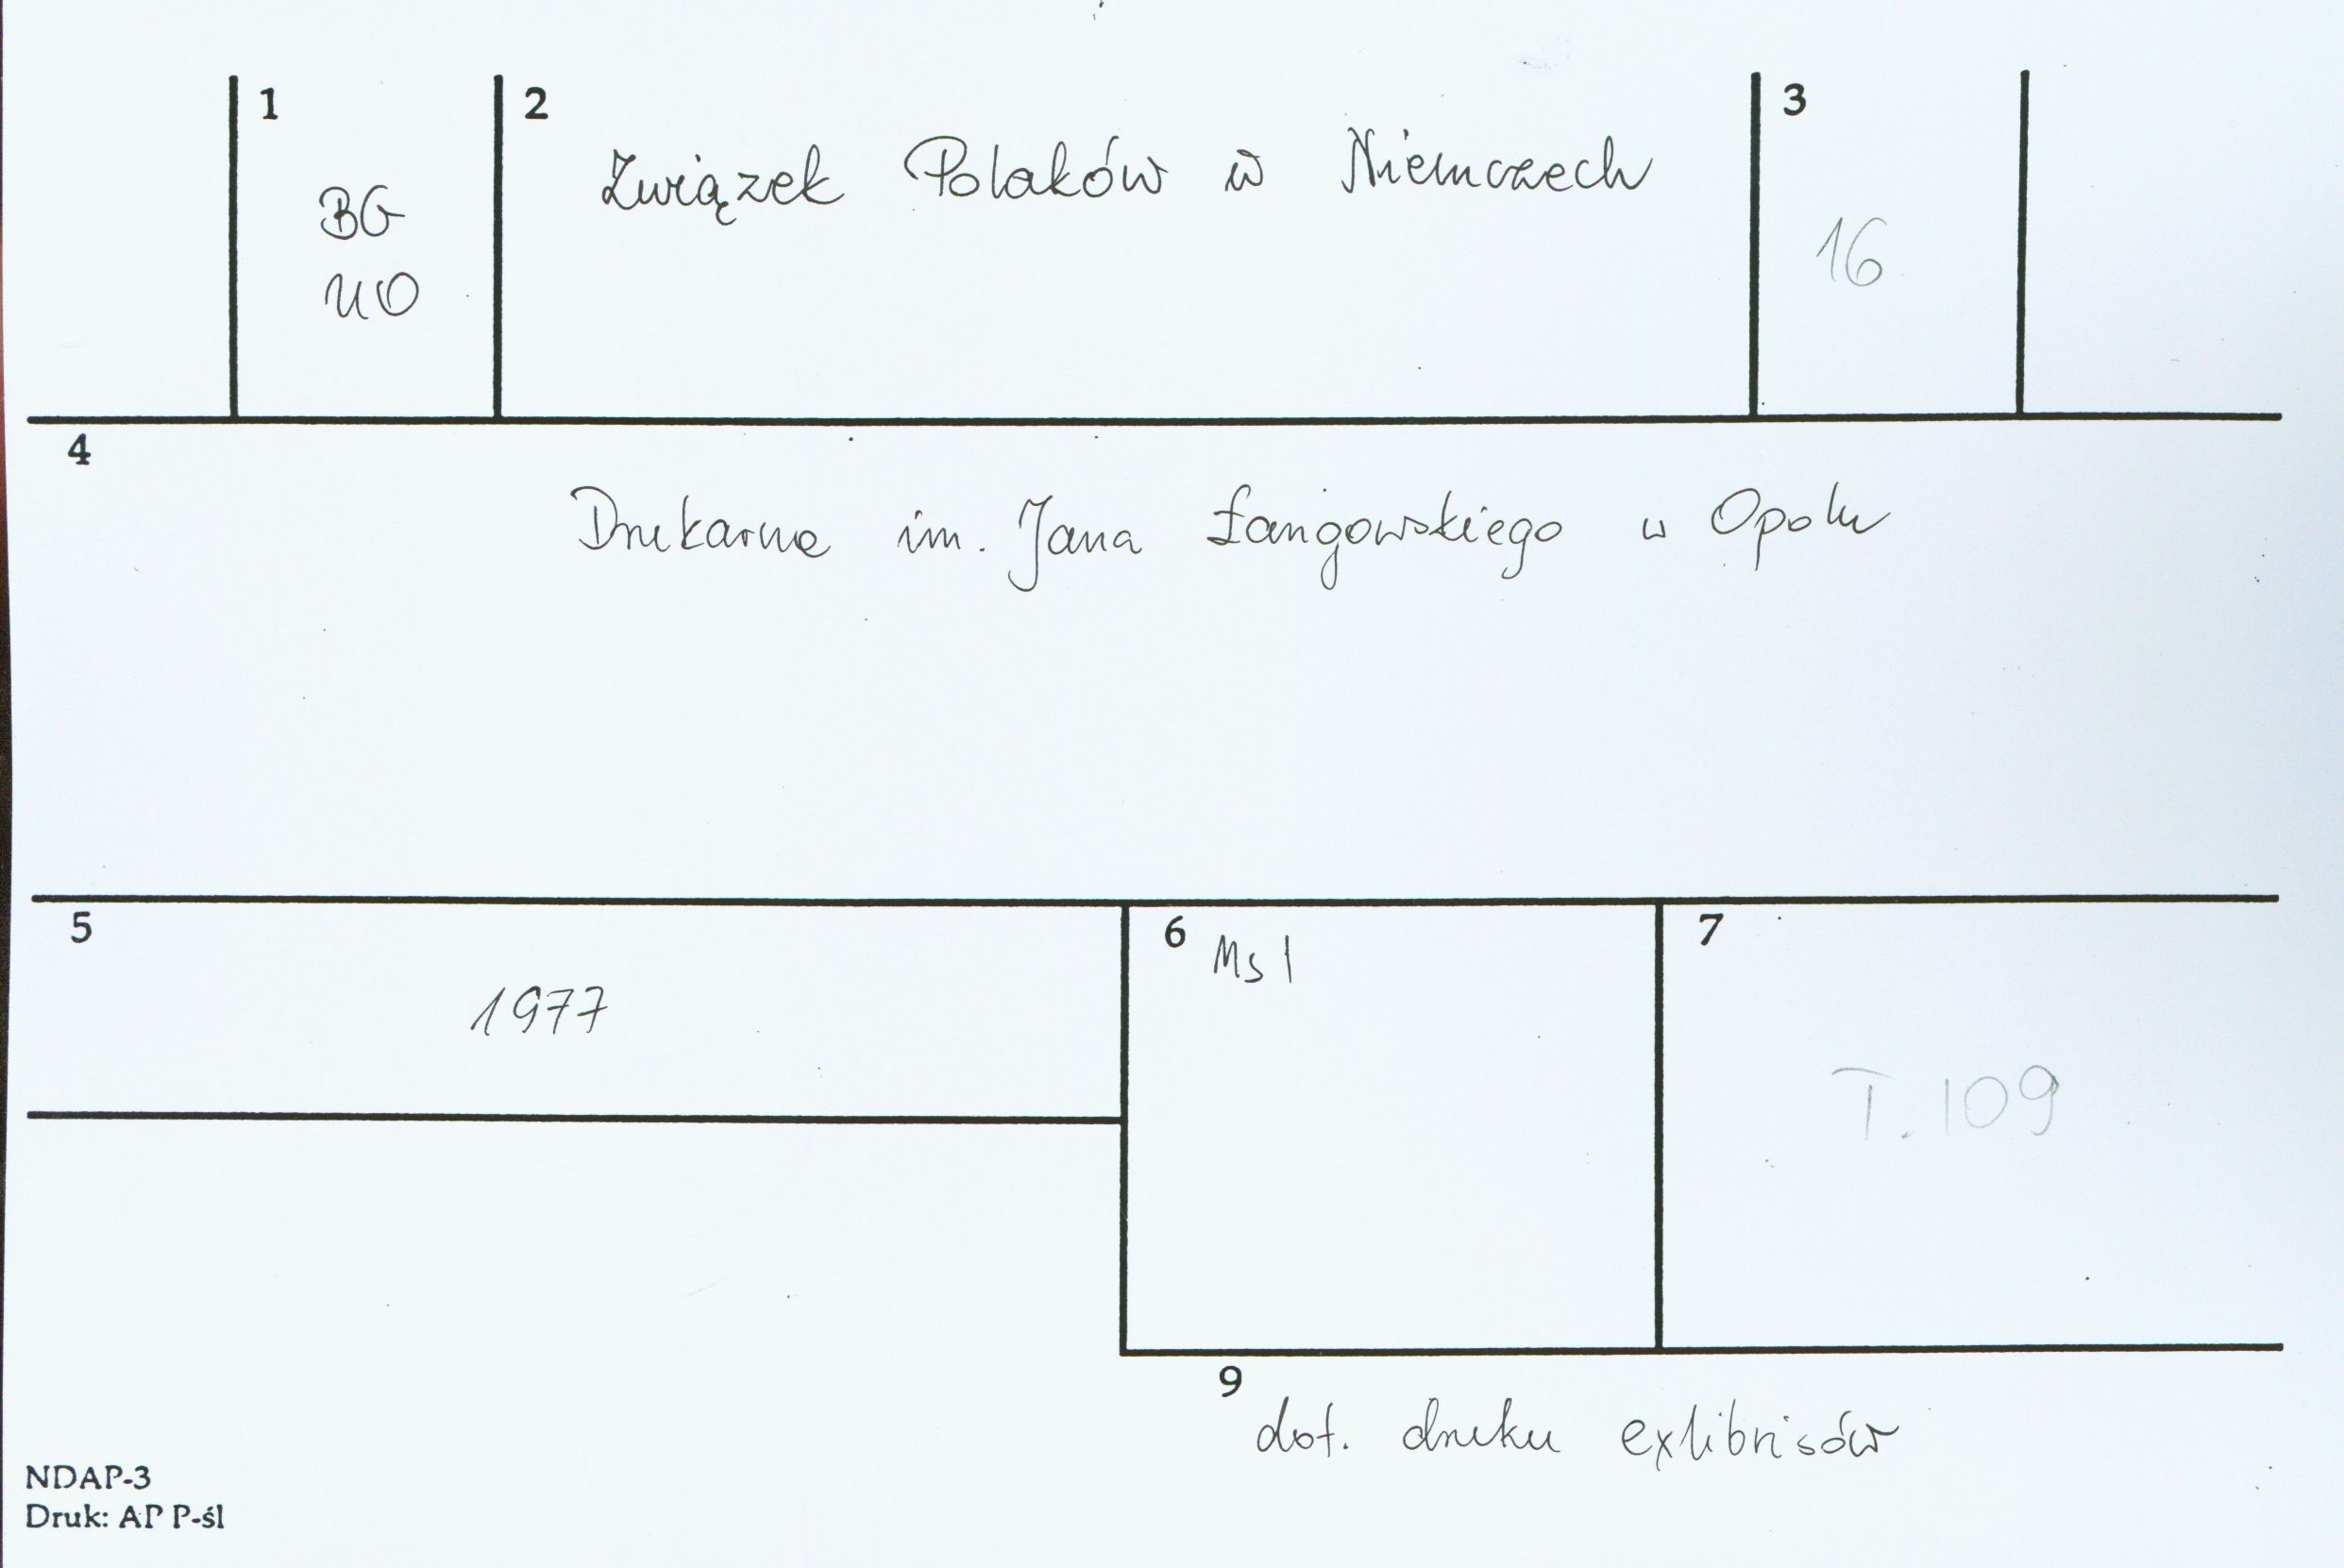 1
BG
UO
2
Związek Polaków w Niemczech
3
16
4
Drukarnia im. Jana Łangowskiego w Opolu
5
1977
6
Ms 1
7
T. 109
9
dot. druku exlibrisów
NDAP-3
Druk: AP P-śl